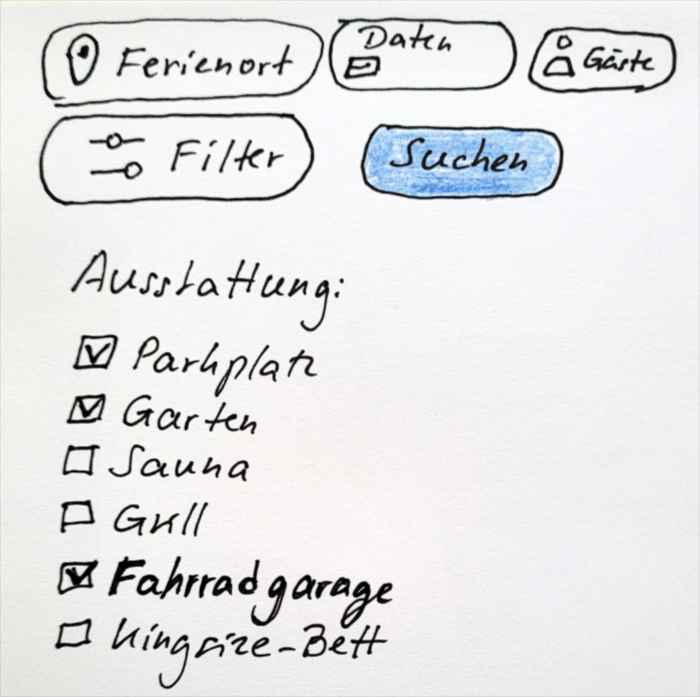 Ferienort Daten Gäste
Filter Suchen
Ausstattung:
Parkplatz
Garten
Sauna
Grill
Fahrradgarage
Kingsize-Bett